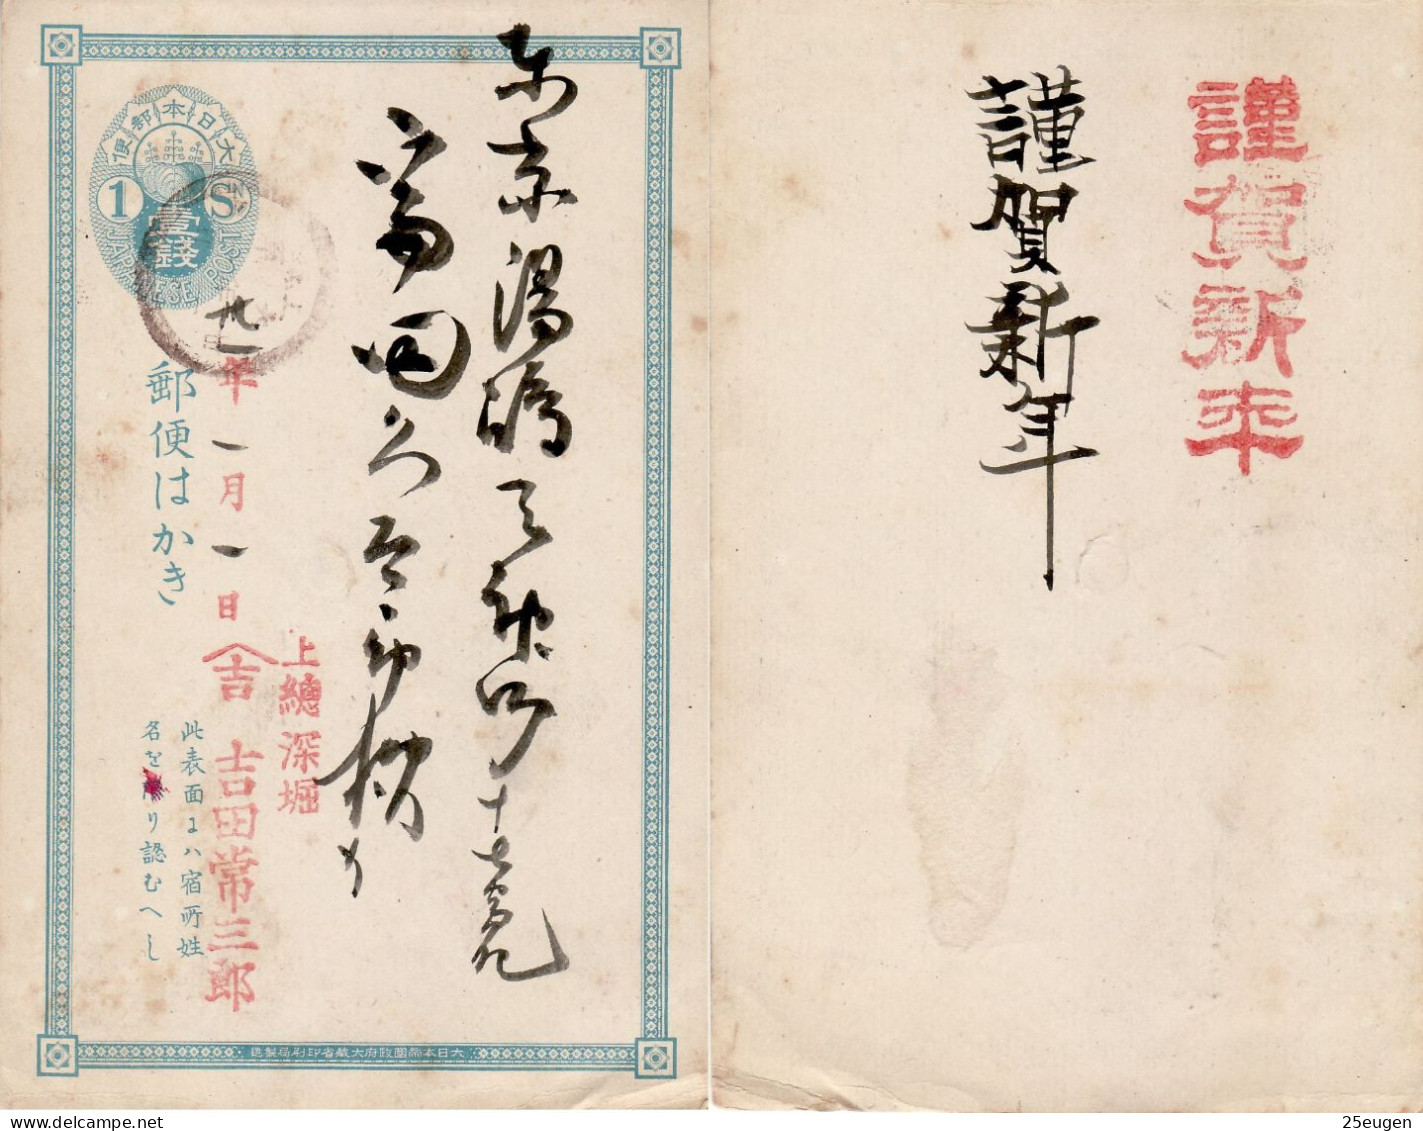 東京湯嶋天神町十七
富田
大日本郵便
1 S
壹錢
JAPANESE POST
廿 年一月一日
郵便はかき
上總深堀
吉 吉田常三郎
此表面にハ宿所姓
名を り認むへし
大日本帝國政府大藏省印刷局製造
謹賀新年
謹賀新年
25eugen